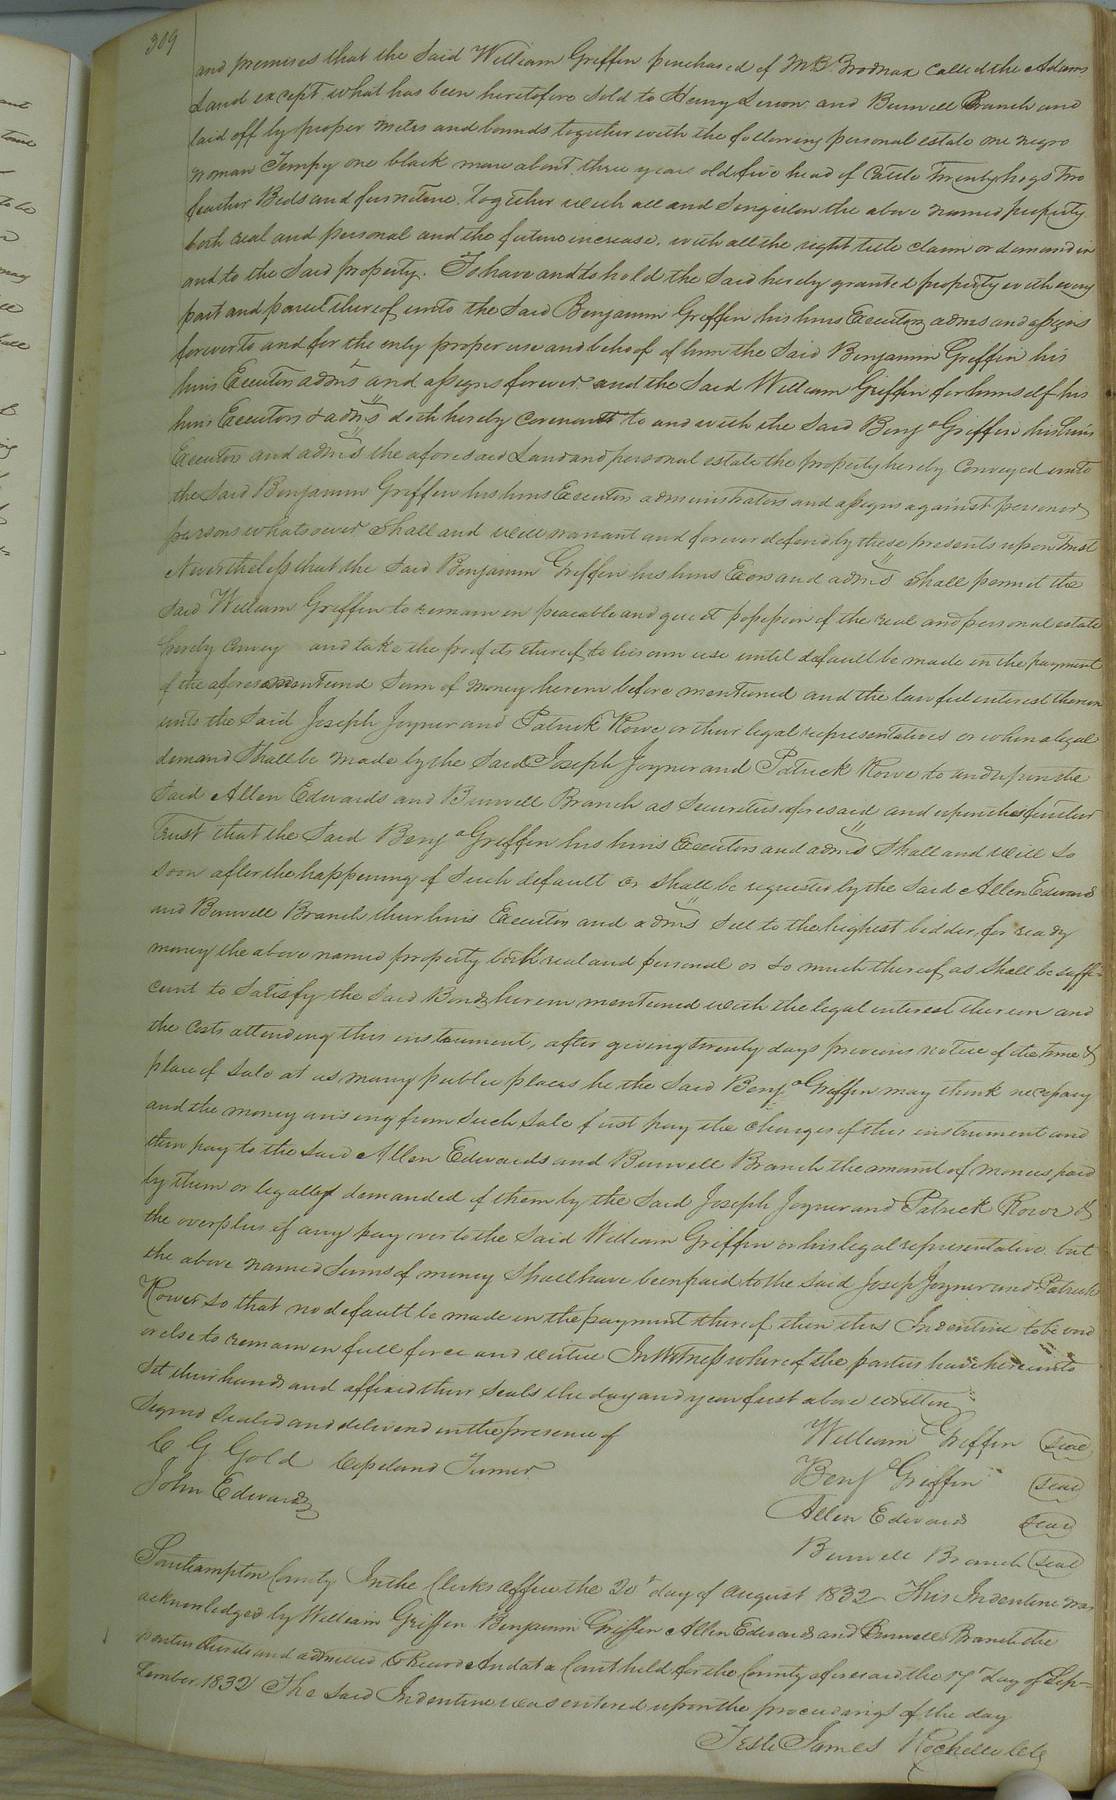 309
and premises that the Said William Griffin purchased of M B. Brodnax Called the Adams
Land except what has been heretofore Sold to Henry and Burwell Branch and
laid off by proper metes and bounds together with the following personal estate one negro
woman Tempy one black mare about three years old five head of Cattle Twenty hogs Two
feather Beds and furniture. Together with all and Singular the above named property
both real and personal and the future increase. with all the right title claim or demand in
and to the Said property. To have and to hold the Said hereby granted property with every
part and parcel thereof unto the Said Benjamin Griffin his hiers Executors adms and assigns
forever To and for the only proper use and behoof of him the Said Benjamin Griffin his
hiers Executors adms and assigns forever. and the Said William Griffin for himself his
hiers Executors & adms doth hereby Covenant to and with the Said Benja Griffin his hiers
Executors and adms the aforesaid Land and personal estate the property hereby Conveyed unto
the Said Benjamin Griffin his hiers Executors administrators and assigns against person or
persons whatsoever Shall and will warrant and forever defend by these presents upon Trust
Nevertheless that the Said Benjamin Griffin his hiers Exors and adms Shall permit the
Said William Griffin to remain in peaceable and quiet possession of the real and personal estate
hereby Convey and take the profits thereof to his own use until default be made in the payment
of the afores mentiond Sum of money herein before mentioned and the lawful interest thereon
unto the Said Joseph Joyner and Patrick Rowe or their legal representatives or when a legal
demand Shall be made by the Said Joseph Joyner and Patrick Rowe to and upon the
Said Allen Edwards and Burwell Branch as Securities aforesaid and upon the further
Trust that the Said Benja Griffin his hiers Executors and adms Shall and will So
Soon after the happening of Such default or Shall be requested by the Said Allen Edwards
and Burwell Branch their hiers Executors and adms Sell to the highest bidder for ready
money the above named property both real and personal or So much thereof as Shall be suffi-
cient to Satisfy the Said Bonds herein mentioned with the legal interest thereon and
the Costs attending this instrument, after giving twenty days previous notice of the time &
place of Sale at as many public places he the Said Benja Griffin may think necessary
and the money arising from Such Sale first pay the Charges of this instrument and
then pay to the Said Allen Edwards and Burwell Branch the amount of monies paid
by them or legally demanded of them by the Said Joseph Joyner and Patrick Rowe &
the overplus if any pay over to the Said William Griffin or his legal representative. but
the above named Sums of money Shall have been paid to the Said Josep Joyner and Patrick
Rowe So that no default be made in the payment thereof then this Indenture to be void
or else to remain in full force and virtue In Witness whereof the parties have hereunto
Set their hands and affixed their Seals the day and year first above written
Signed Sealed and delivered in the presence of
C G Gold Copeland Turner
John Edwards
William Griffin Seal
Benj Griffin Seal
Allen Edwards Seal
Burwell Branch Seal
Southampton County In the Clerks office the 20th day of August 1832 This Indenture was
acknowledged by William Griffin Benjamin Griffin Allen Edwards and Burwell Branch the
parties thereto and admitted to Record And at a Court held for the County aforesaid the 17 day of Sep-
tember 1832 The Said Indenture was entered upon the proceedings of the day
Teste James Rochelle Clk